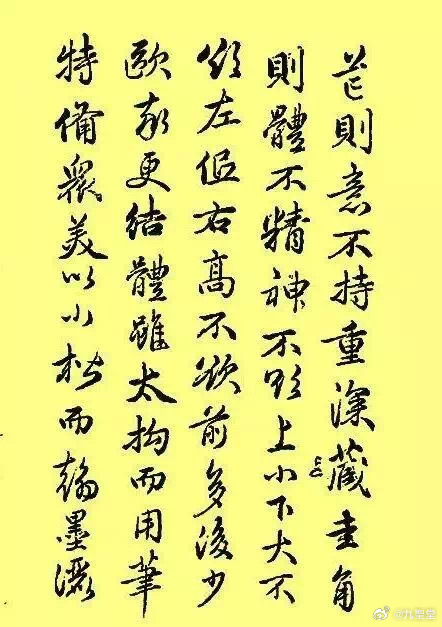 芒則意不持重深藏圭角
則體不精神不欲上小下大不
欲左低右高不欲前多後少
歐率更結體雖太拘而用筆
特備眾美以小楷而翰墨灑